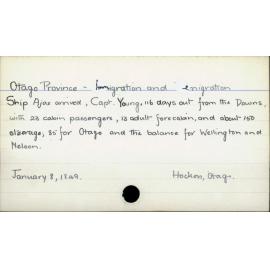 Otago Province - Immigration and enigration
Ship Ajax arrived, Capt. Young, 116 days out from the Downs,
with 23 cabin passengers, 13 adult forecabin, and about 150
steerage, 85 for Otago and the balance for Wellington and
Nelson.
January 8, 1849.
Hocken, Otago.